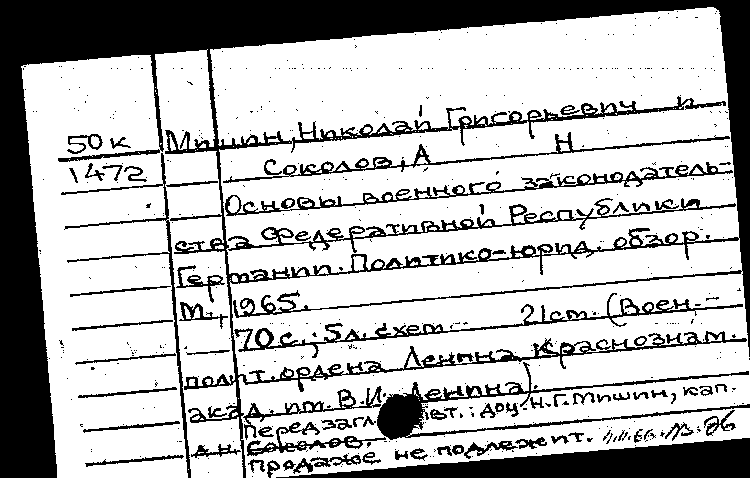 50к Мишин, Николай Григорьевич и
1472 Соколов, А Н
Основы военного законодатель-
ства Федеративной Республики
Германии. Политико-юрид. обзор.
М., 1965.
70 с.; 5 л. схем 21 см. (Воен.-
полит. ордена Ленина Краснознам.
акад. им. В.И. Ленина).
Перед загл. авт.: доц. Н.Г. Мишин, кап.
А.Н. Соколов.
Продаже не подлежит.